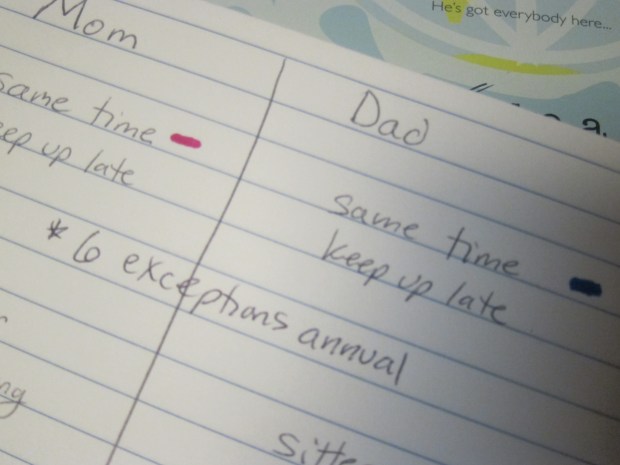 He's got everybody here...
Mom
same time
keep up late
Dad
same time
keep up late
* 6 exceptions annual